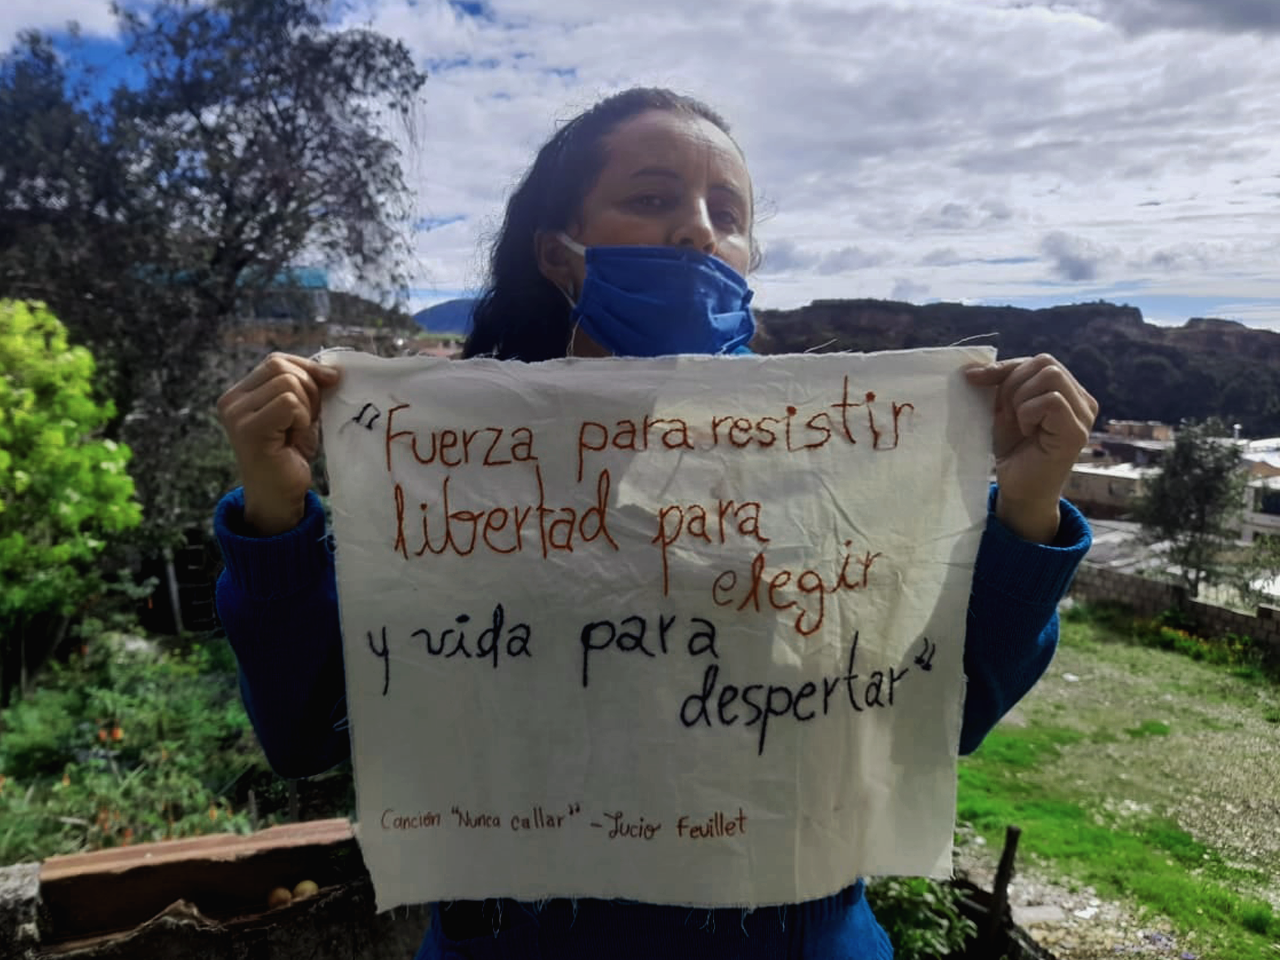 "Fuerza para resistir
libertad para
elegir
y vida para
despertar"
Canción "Nunca callar" - Lucio Feuillet